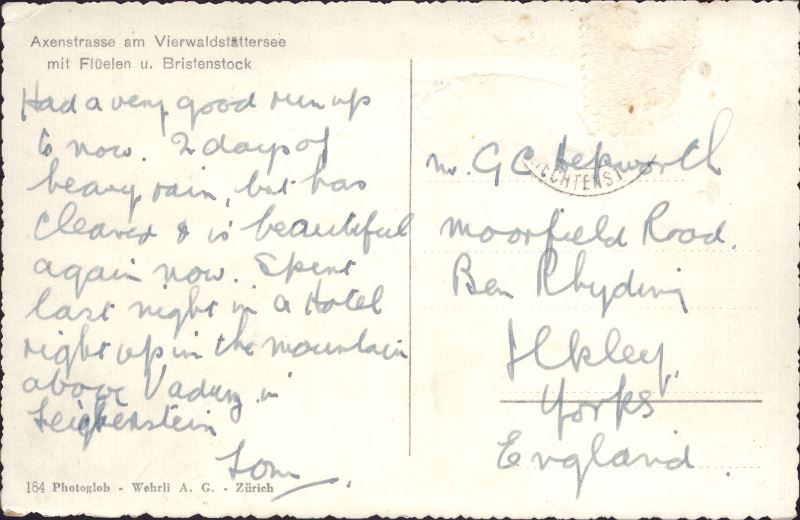 Axenstrasse am Vierwaldstättersee
mit Flüelen u. Bristenstock
Had a very good run up
to now. 2 days of
heavy rain, but has
cleared & is beautiful
again now. Spent
last night in a Hotel
right up in the mountain
above Vaduz in
Leichenstein
Tom
164 Photoglob - Wehrli A. G. - Zürich
Mr. G C Hepworth
Moorfield Road.
Ben Rhyding
Ilkley,
Yorks
England.